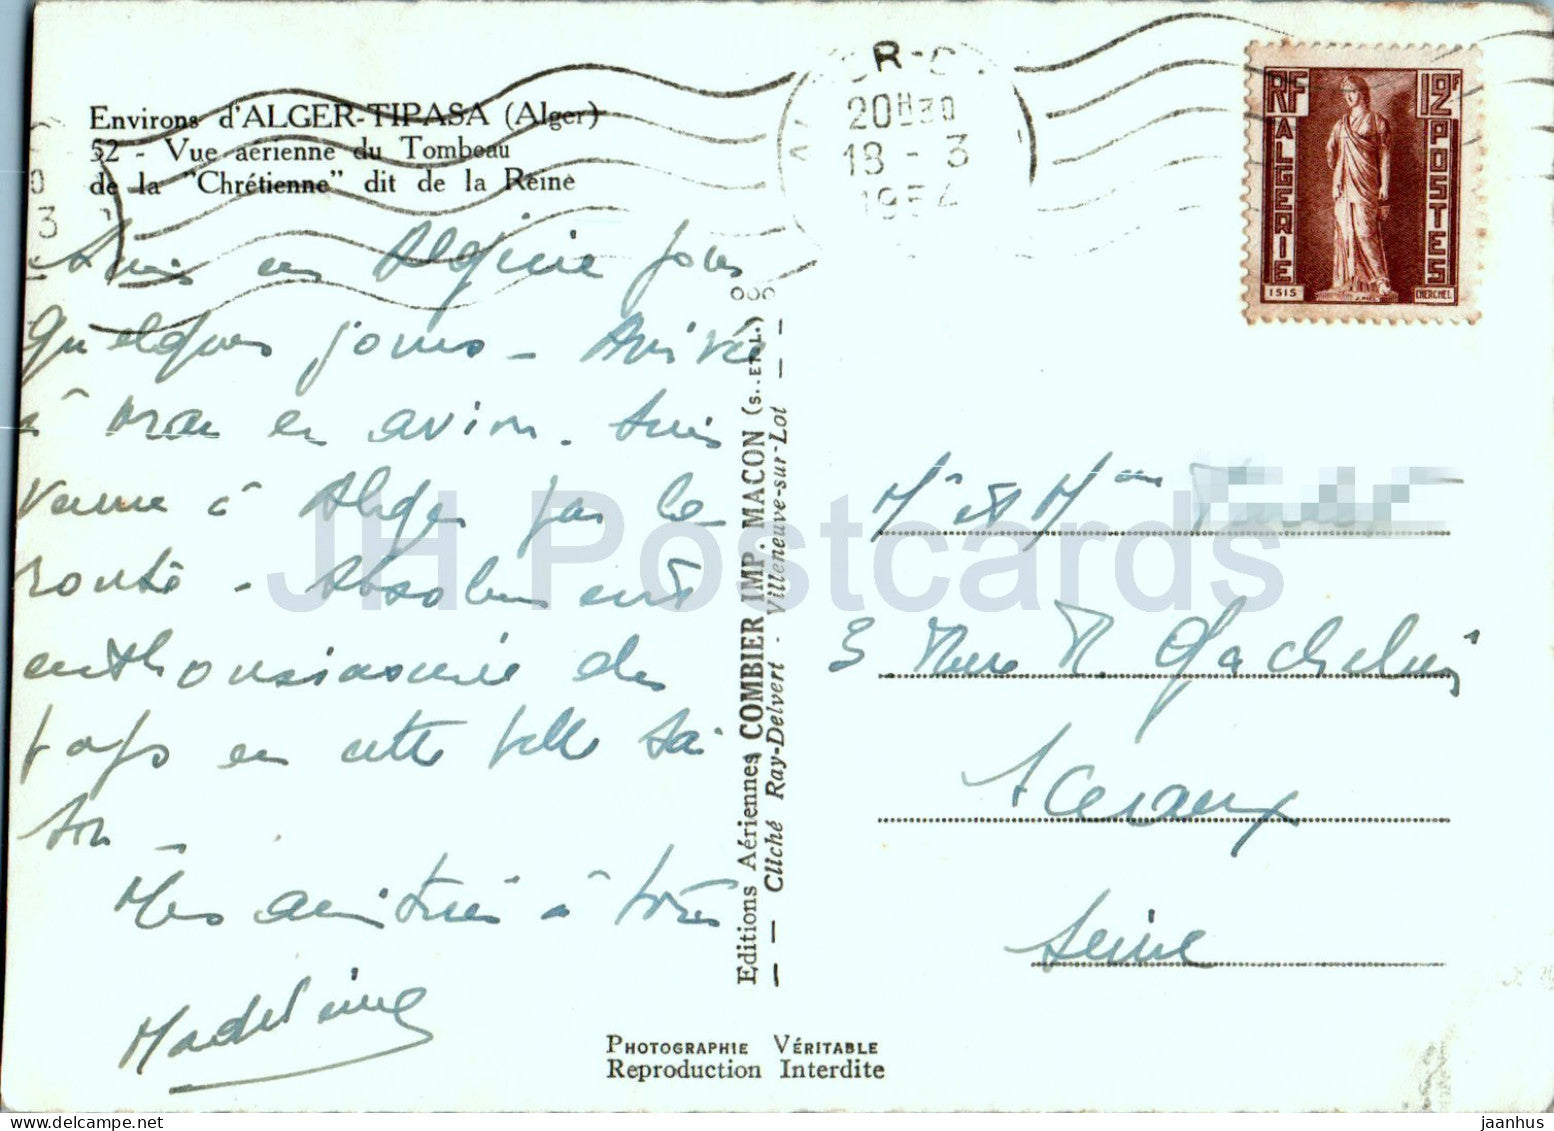 Environs d'ALGER-TIPASA (Alger)
52 - Vue aérienne du Tombeau
de la "Chrétienne" dit de la Reine
R-
20H30
18 - 3
1954
3
RF
ALGERIE
12F
POSTES
ISIS
CHERCHEL
Suis en Algérie pour
quelques jours - Arrivée
à Oran en avion. Suis
venue à Alger par la
route - Absolument
enthousiasmée du
pays en cette belle sai
son -
Mes amitiés à tous
Madeleine
Editions Aériennes COMBIER IMP. MACON (S.-ET-L.)
Cliché Ray-Delvert - Villeneuve-sur-Lot
Mr et Mme
3 Rue M.
Sceaux
Seine
PHOTOGRAPHIE VÉRITABLE
Reproduction Interdite
JH Postcards
www.delcampe.net
jaanhus